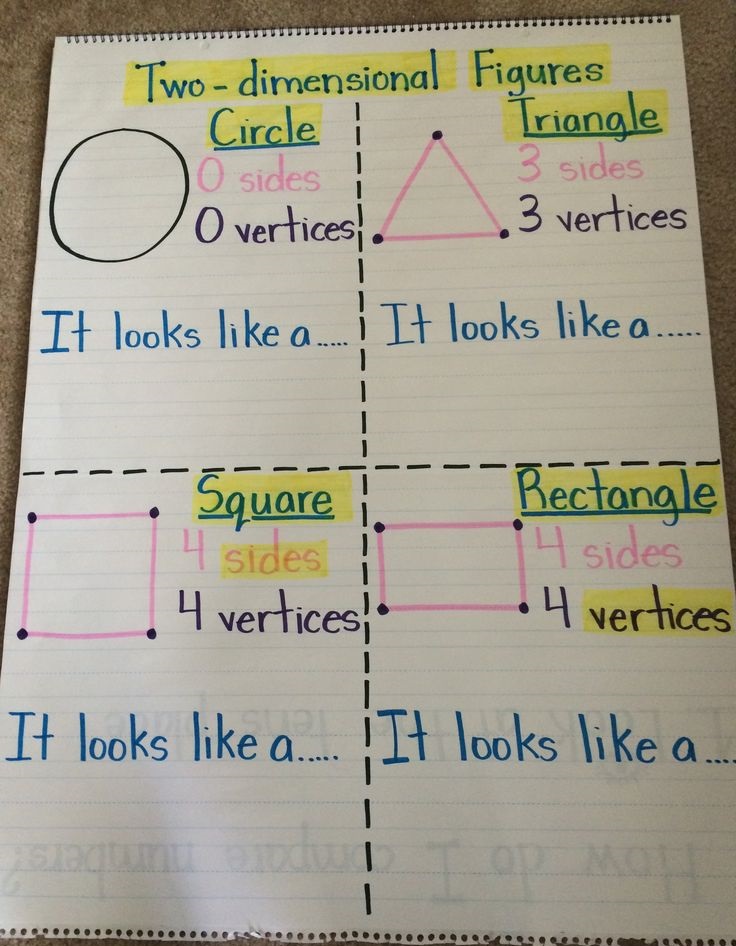 Two-dimensional Figures
Circle
0 sides
0 vertices
It looks like a.....
Triangle
3 sides
3 vertices
It looks like a.....
Square
4 sides
4 vertices
It looks like a.....
Rectangle
4 sides
4 vertices
It looks like a....
How do I compare numbers?